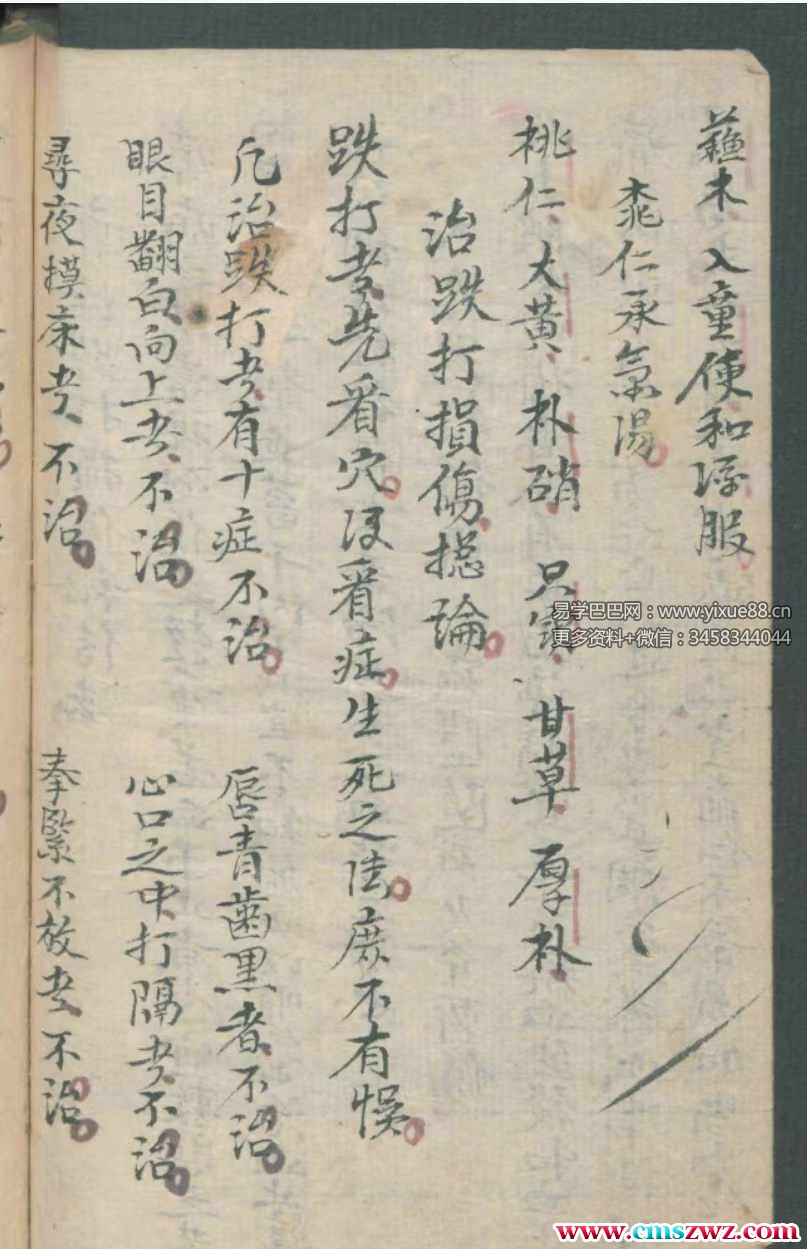 蘓木入童使和添服
桃仁承氣湯
桃仁、大黄、朴硝 只实、甘草、厚朴
治跌打損傷捴論
跌打者先看穴後看症生死之法庶不有悞
凡治跌打者有十症不治 唇青齒黑者不治
眼目翻白向上者不治 心口之中打隔者不治
尋夜摸床者不治 奉緊不放者不治
易学巴巴网：www.yixue88.cn
更多资料+微信：3458344044
www.cmszwz.com